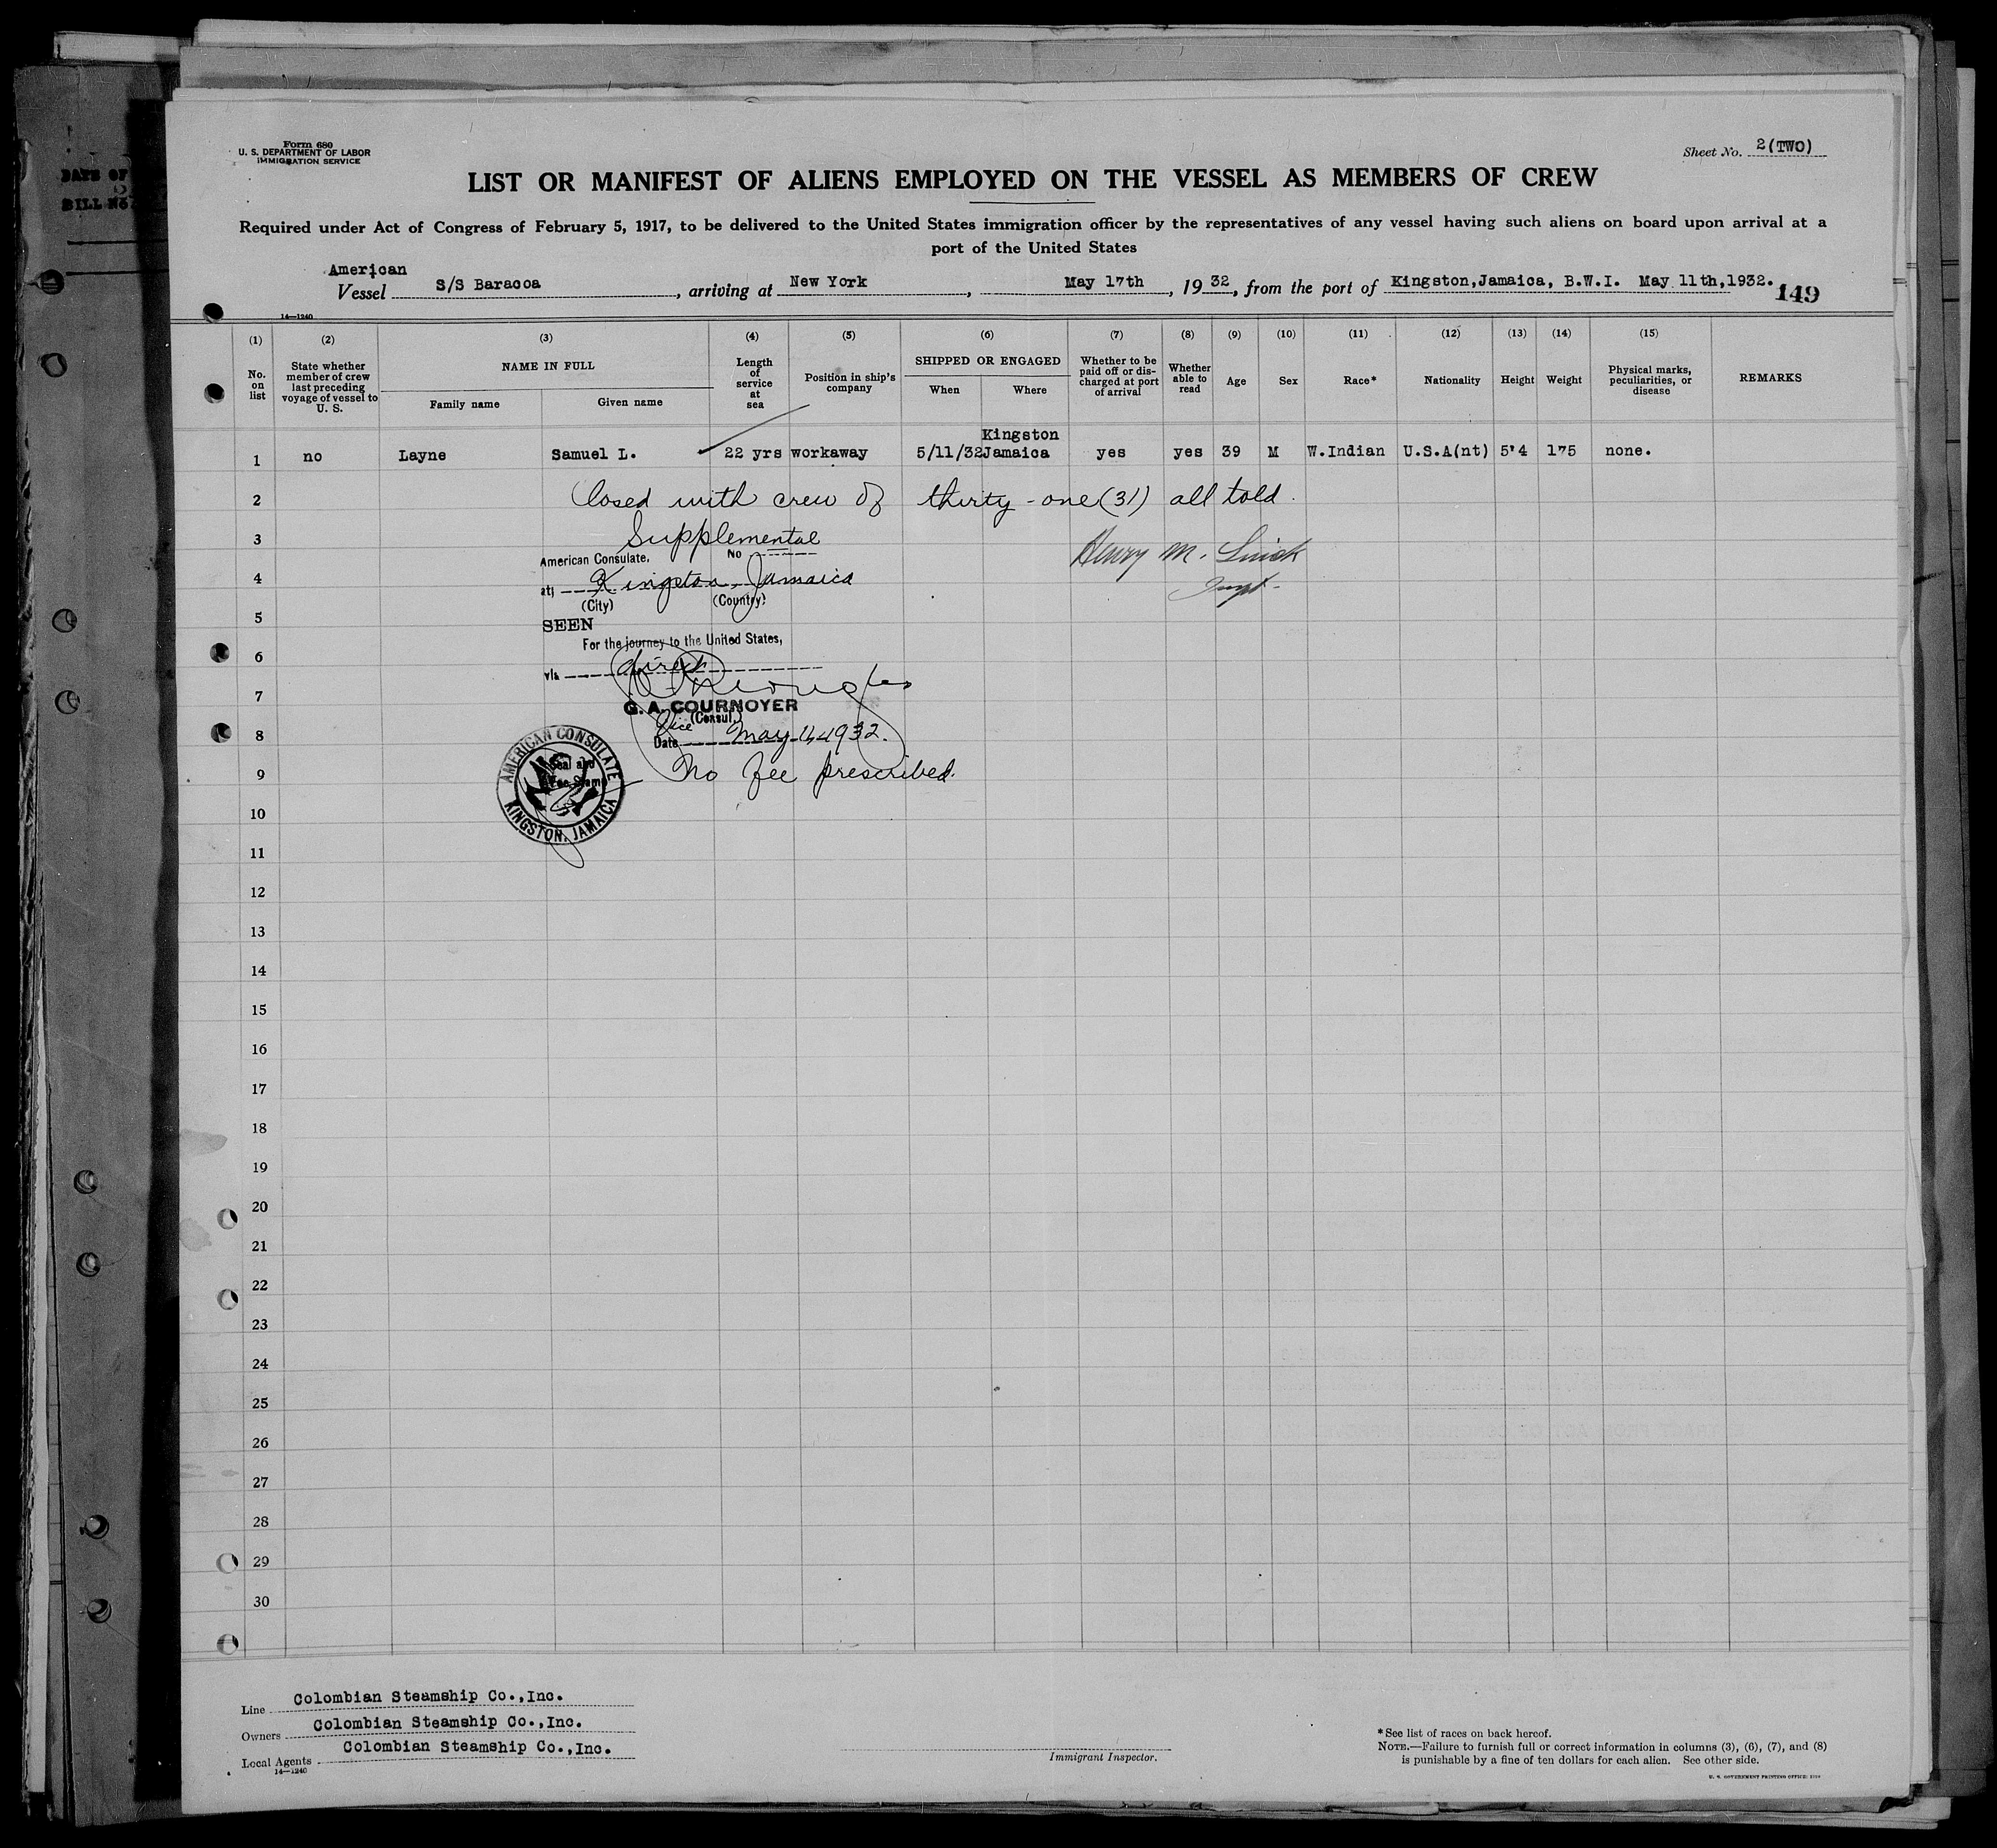 DATE OF
BILL No.
Form 680
U. S. DEPARTMENT OF LABOR
IMMIGRATION SERVICE
Sheet No. 2(TWO)
LIST OR MANIFEST OF ALIENS EMPLOYED ON THE VESSEL AS MEMBERS OF CREW
Required under Act of Congress of February 5, 1917, to be delivered to the United States immigration officer by the representatives of any vessel having such aliens on board upon arrival at a
port of the United States
American
Vessel S/S Baracoa, arriving at New York, May 17th, 1932, from the port of Kingston,Jamaica, B.W.I. May 11th,1932.
149
14—1240
(1) (2) (3) (4) (5) (6) (7) (8) (9) (10) (11) (12) (13) (14) (15)
No. on list
State whether member of crew last preceding voyage of vessel to U. S.
NAME IN FULL
Family name Given name
Length of service at sea
Position in ship's company
SHIPPED OR ENGAGED
When Where
Whether to be paid off or dis-charged at port of arrival
Whether able to read
Age Sex Race* Nationality Height Weight
Physical marks, peculiarities, or disease
REMARKS
Kingston
1 no Layne Samuel L. 22 yrs workaway 5/11/32 Jamaica yes yes 39 M W.Indian U.S.A(nt) 5'4 175 none.
2 Closed with crew of thirty-one (31) all told.
3 Supplemental
American Consulate, No
Henry M.
4 at Kingston, Jamaica
(City) (Country)
5 SEEN
For the journey to the United States,
6 via direct
7 G. A. COURNOYER
Vice (Consul.)
8 Date May 11, 1932.
9 No fee prescribed.
AMERICAN CONSULATE
Seal and
Fee Stamp
KINGSTON, JAMAICA
10
11
12
13
14
15
16
17
18
19
20
21
22
23
24
25
26
27
28
29
30
Line Colombian Steamship Co.,Inc.
Owners Colombian Steamship Co.,Inc.
Local Agents Colombian Steamship Co.,Inc.
14—1240
Immigrant Inspector.
*See list of races on back hereof.
NOTE.—Failure to furnish full or correct information in columns (3), (6), (7), and (8)
is punishable by a fine of ten dollars for each alien. See other side.
U. S. GOVERNMENT PRINTING OFFICE: